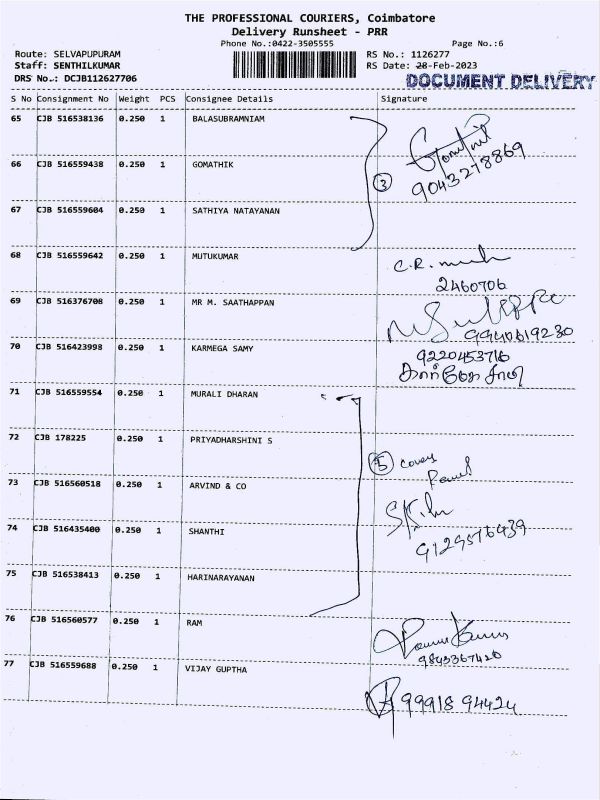 THE PROFESSIONAL COURIERS, Coimbatore
Delivery Runsheet - PRR
Phone No.:0422-3505555 Page No.:6
Route: SELVAPUPURAM RS No.: 1126277
Staff: SENTHILKUMAR RS Date: 28-Feb-2023
DRS No.: DCJB112627706 DOCUMENT DELIVERY
S No Consignment No Weight PCS Consignee Details Signature
65 CJB 516538136 0.250 1 BALASUBRAMNIAM
66 CJB 516559438 0.250 1 GOMATHIK 3 9043278869
67 CJB 516559604 0.250 1 SATHIYA NATAYANAN
68 CJB 516559642 0.250 1 MUTUKUMAR C.R.
2460706
69 CJB 516376708 0.250 1 MR M. SAATHAPPAN
9940619230
70 CJB 516423998 0.250 1 KARMEGA SAMY 9220453716
71 CJB 516559554 0.250 1 MURALI DHARAN
72 CJB 178225 0.250 1 PRIYADHARSHINI S
5 covers
73 CJB 516560518 0.250 1 ARVIND & CO
74 CJB 516435400 0.250 1 SHANTHI 9129576439
75 CJB 516538413 0.250 1 HARINARAYANAN
76 CJB 516560577 0.250 1 RAM
9843367420
77 CJB 516559688 0.250 1 VIJAY GUPTHA
99918 94424